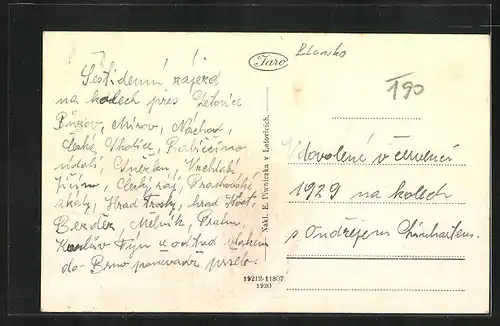 Šestidenní zájezd
na kolech přes Letovice
Bůzov, Mírov, Náchod,
České Skalice, Babiččino
údolí, Sněžku, Vrchlabí
Jičín, Český ráj, Prachovské
skály, Hrad Trosky, hrad Kost
Bezděz, Mělník, Prahu,
Karlův Týn a odtud vlakem
do Brna poněvadž pršelo.
Faro
Nakl. E. Pivnička v Letovicích.
19212-11807
1920
Blansko
190
Vdovolené v červenci
1929 na kolech
s Ondřejem Linhartem.